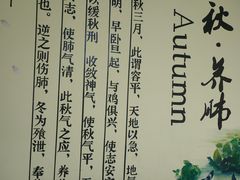 秋·养肺
Autumn
秋三月，此谓容平，天地以急，地气
明，早卧旦起，与鸡俱兴，使志安宁
以缓秋刑，收敛神气，使秋气平，无
志，使肺气清，此秋气之应，养
也。逆之则伤肺，冬为飧泄，奉